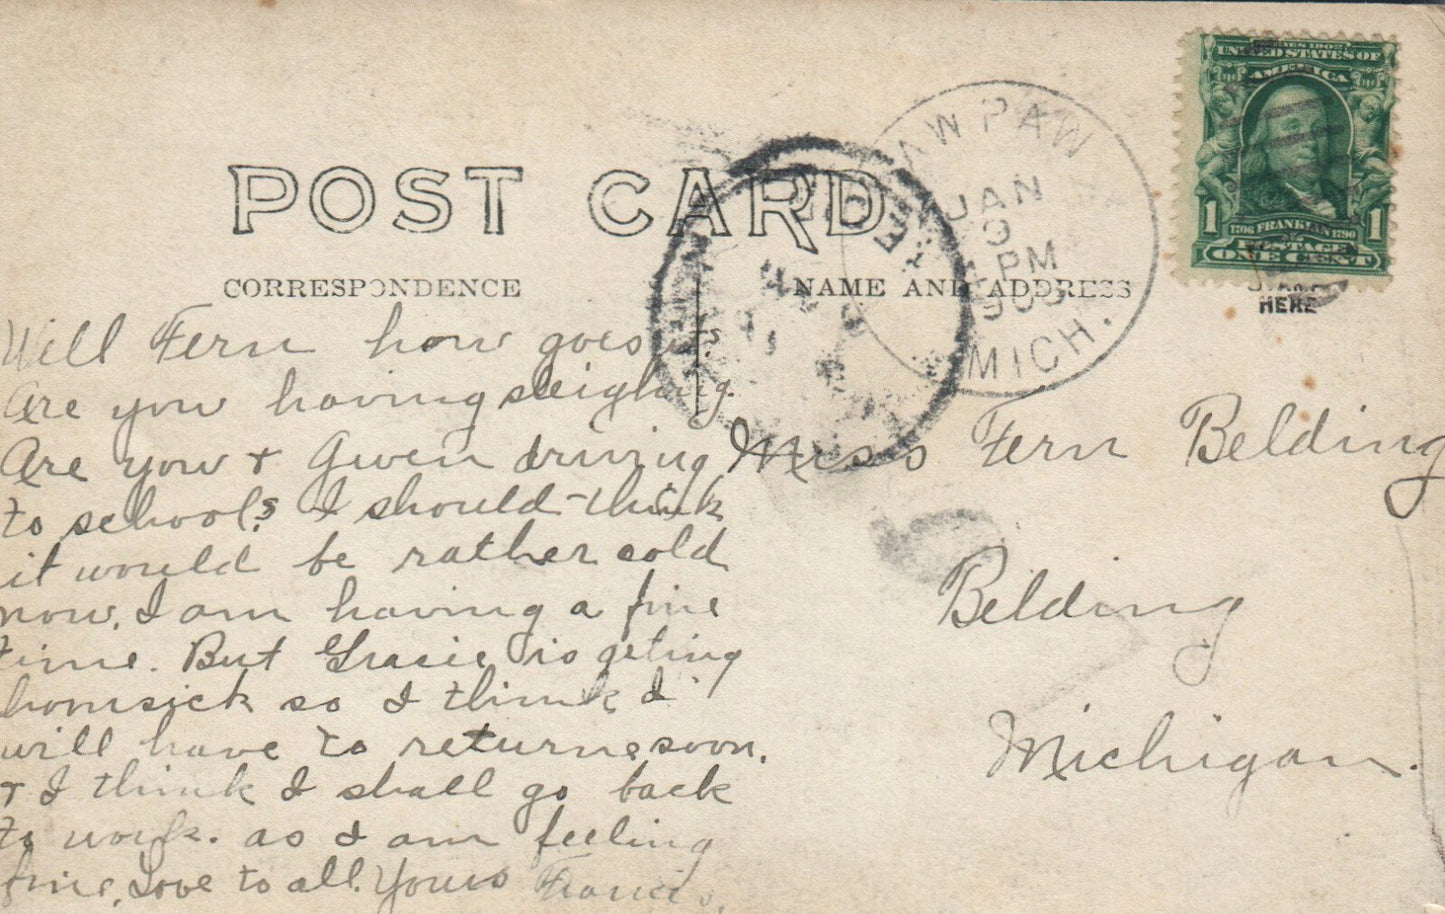 POST CARD
CORRESPONDENCE
NAME AND ADDRESS
PAW PAW
JAN
9
PM
MICH.
SERIES 1902
UNITED STATES OF
AMERICA
1 1706 FRANKLIN 1790 1
POSTAGE
ONE CENT
HERE
Well Fern how goes it?
Are you having sleighing.
Are you + Gwen driving
to school? I should think
it would be rather cold
now. I am having a fine
time. But Gracie is geting
homsick so I think I
will have to returne soon.
+ I think I shall go back
to work. as I am feeling
fine. Love to all. Yours Francis.
Miss Fern Belding
Belding
Michigan.